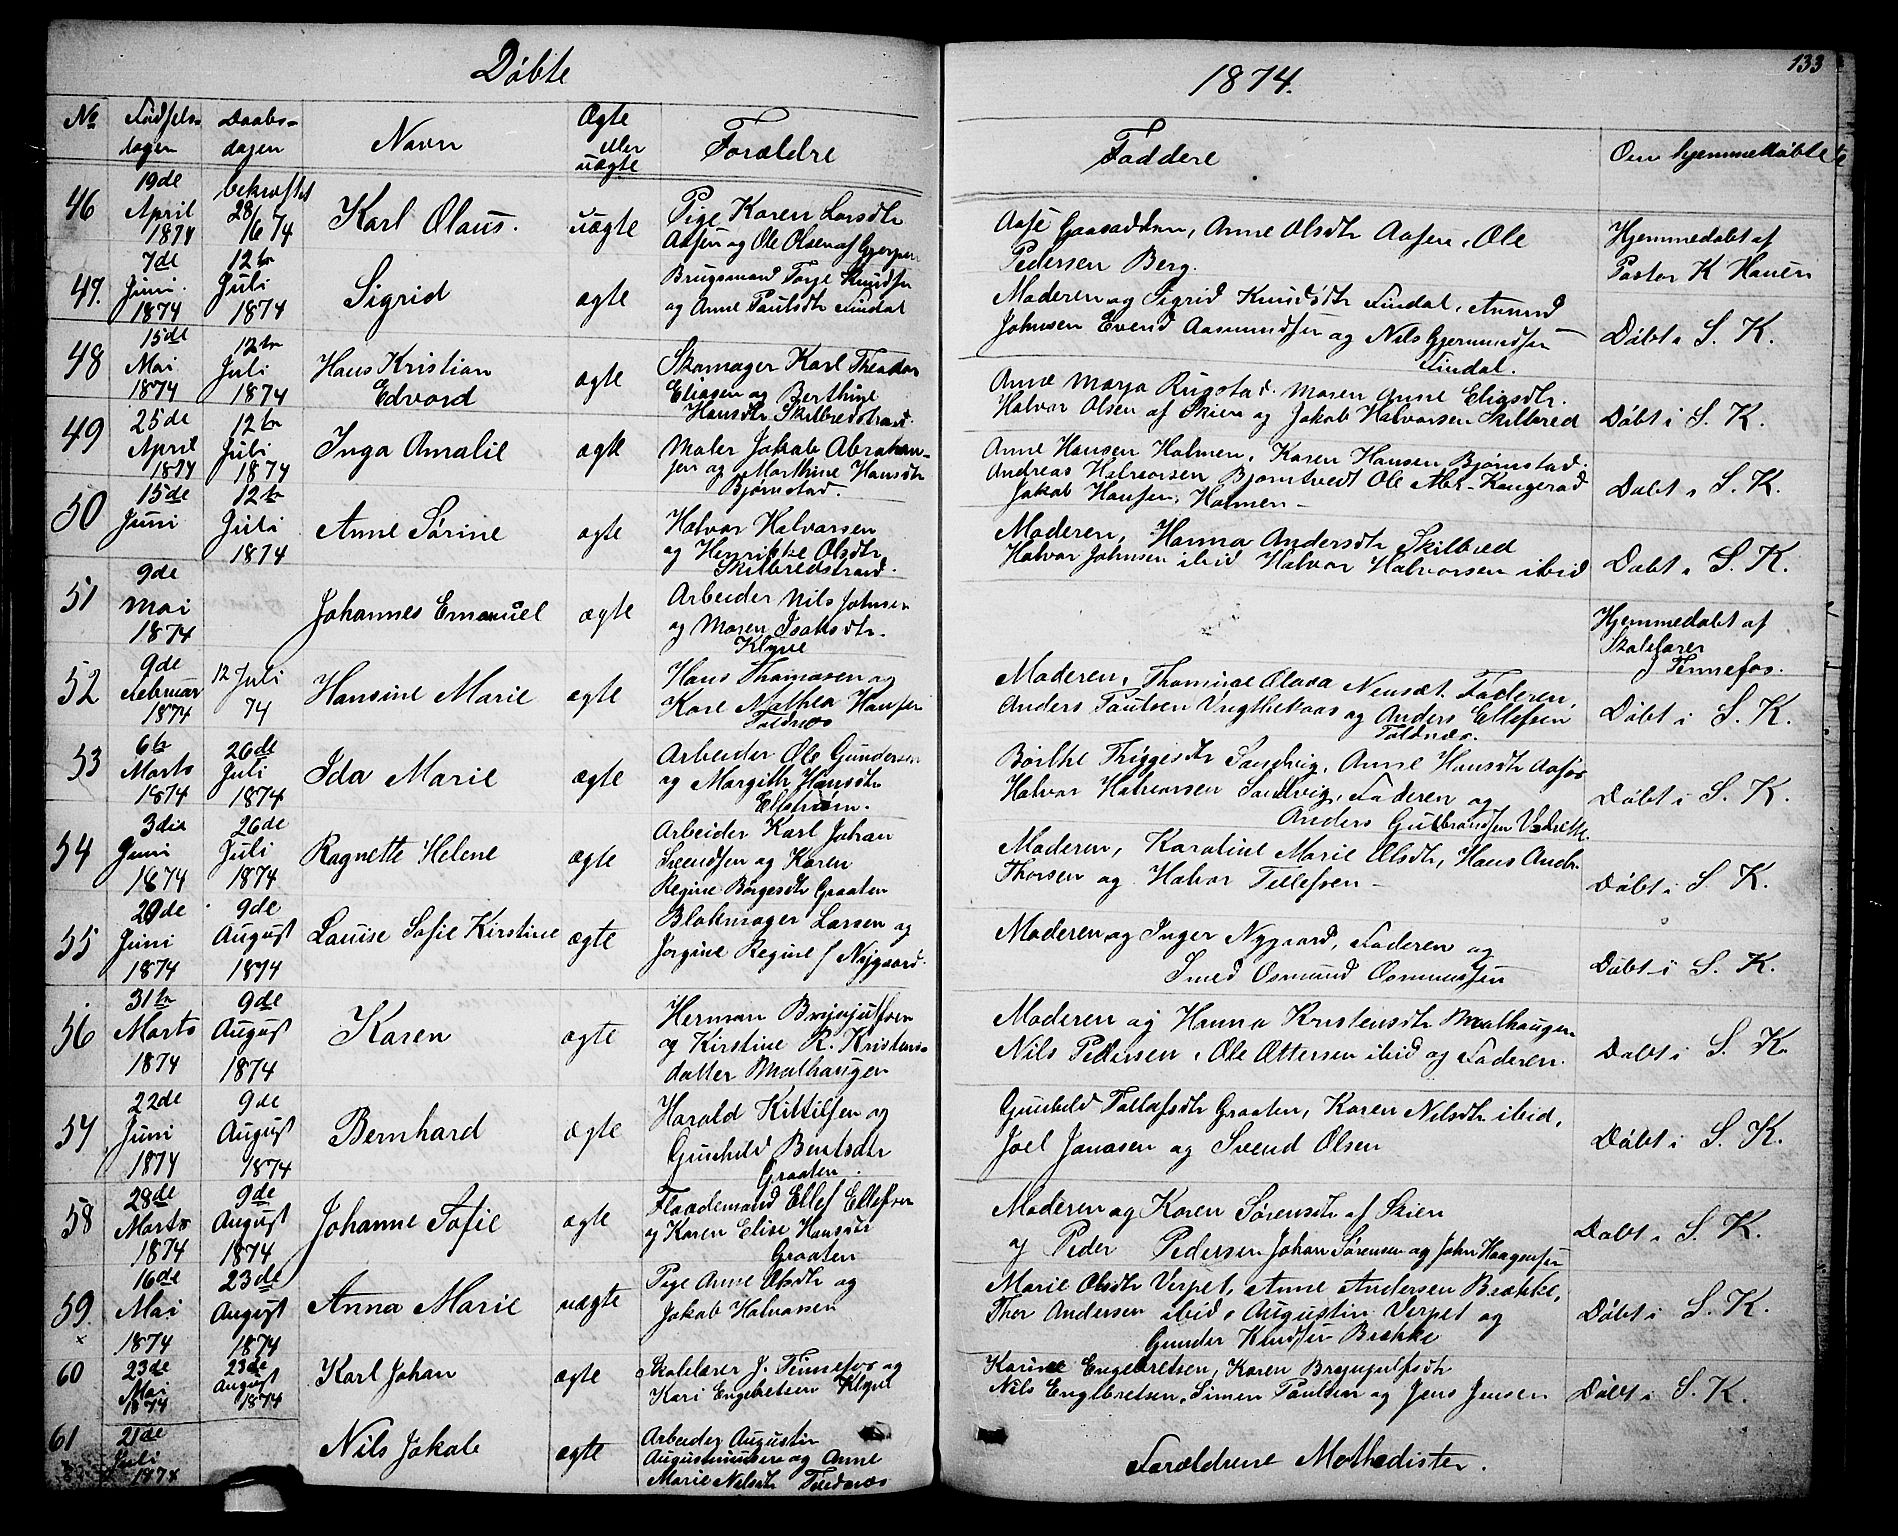 Döbte
1874.
133
No Fødsels- Daabs- Navn Ægte Forældre Faddere Om hjemmedøbte
dagen dagen eller
uægte
46 19de April 1874 bekræftet 28/6 74 Karl Olaus. uægte
Pige Karen Larsdtr
Aasen og Ole Olsen af Gjerpen
Anne Olsdtr Aasen, Ole
Pedersen Berg.
Hjemmedøbt af
Pastor K Hauen
47. 7de Juni 1874 12te Juli 1874 Sigrid ægte
Brugsmand Torje Knudsen
og Anne Paulsdtr Findal
Moderen og Sigrid Knudsdtr Findal, Amund
Johnsen Evend Aasmundsen og Nils Gjermundsen
Findal.
Døbt i S. K.
48 15de Mai 1874 12te Juli 1874 Hans Kristian
Edvard ægte
Skomager Karl Theodor
Eliasen og Berthine
Hansdtr Skilbredstrand.
Anne Marja Rugstad. Maren Anne Eliasdtr.
Halvor Olsen af Skien og Jakob Halvorsen Skilbred
Døbt i S. K.
49 25de April 1874 12te Juli 1874 Inga Amalie ægte
Maler Jakob Abraham-
sen og Marthine Hansdtr
Bjørnstad.
Anne Hansen Holmen, Karen Hansen Bjørnstad.
Andreas Halvorsen Bjørntvedt Ole Abr. Kongerød
Jakob Hansen, Holmen -
Døbt i S. K.
50 15de Juni 12te Juli 1874 Anne Sørine ægte
Halvor Halvorsen
og Henrikke Olsdtr
Skilbredstrand.
Moderen, Hanna Andersdtr Skilbred
Halvor Johnsen ibid Halvor Halvorsen ibid
Døbt i S. K.
51 9de Mai 1874 Johannes Emanuel ægte
Arbeider Nils Johnsen
og Maren Isaksdtr.
Klyve
Hjemmedøbt af
Skolelærer
J Finnefos.
52 9de Februar 1874 12 Juli 74 Hansine Marie ægte
Hans Thomasen og
Kare Mathea Hansen
Foldnæs
Moderen, Thomine Olava Nensæt. Faderen,
Anders Paulsen og Anders Ellefsen
Foldnæs.
Døbt i S. K.
53 6te Marts 1874 26de Juli 1874 Ida Marie ægte
Arbeider Ole Gundersen
og Margith Hansdtr
Ellehiem.
Børthe Thyggesdtr Sandvig, Anne Hansdtr Aafos
Halvor Halvorsen Sandvig, Faderen og
Anders Gulbrandsen
Døbt i S. K.
54 3die Juni 1874 26de Juli 1874 Ragnette Helene ægte
Arbeider Karl Johan
Svendsen og Karen
Regine Børgesdtr Graaten
Moderen, Karoline Marie Olsdtr, Hans Andr.
Thorsen og Halvor Tellefsen -
Døbt i S. K.
55 29de Juni 1874 9de August 1874 Lauise Sofie Kirstine ægte
Blokmager Larsen og
Jørgine Regine f Nygaard.
Moderen og Inger Nygaard, Faderen og
Smed Osmund Osmundsen
Døbt i S. K.
56 31te Marts 1874 9de August 1874 Karen ægte
Herman Brynjulfsen
og Kirstine R. Kristens-
datter Molhaugen
Moderen og Hanna Kristensdtr Molhaugen
Nils Pedersen, Ole Ottersen ibid og Faderen.
Døbt i S. K.
57 22de Juni 1874 9de August 1874 Bernhard ægte
Harald Kittilsen og
Gunhild Bentsdtr
Graaten.
Gunhild Tollefsdtr Graaten, Karen Nilsdtr ibid,
Joel Jonasen og Svend Olsen
Døbt i S. K.
58 28de Marts 1874 9de August 1874 Johanne Sofie ægte
Flaademand Ellef Ellefsen
og Karen Elise Hansdtr
Graaten
Moderen og Karen Sørensdtr af Skien
og Peder Pedersen Johan Sørensen og John Haagensen
Døbt i S. K.
59. 16de Mai 1874 23de August 1874 Anna Marie uægte
Pige Anne Olsdtr og
Jakob Halvorsen
Marie Olsdtr Verpet, Anne Andersen Brække,
Thor Andersen ibid, Augustin Verpet og
Gunder Knudsen Brække
Døbt i S. K.
60 23de Mai 1874 23de August 1874 Karl Johan ægte
Skolelærer J. Finnefos og
Kari Engebretsen Klyve
Karine Engebretsen, Karen Brynjulfsdtr
Nils Englbretsen, Simen Paulsen og Jens Jensen
Døbt i S. K.
61 21de Juli 1874 Nils Jakob ægte
Arbeider Augustin
Augustinusen og Anne
Marie Nilsdtr
Forældrene Methodister.